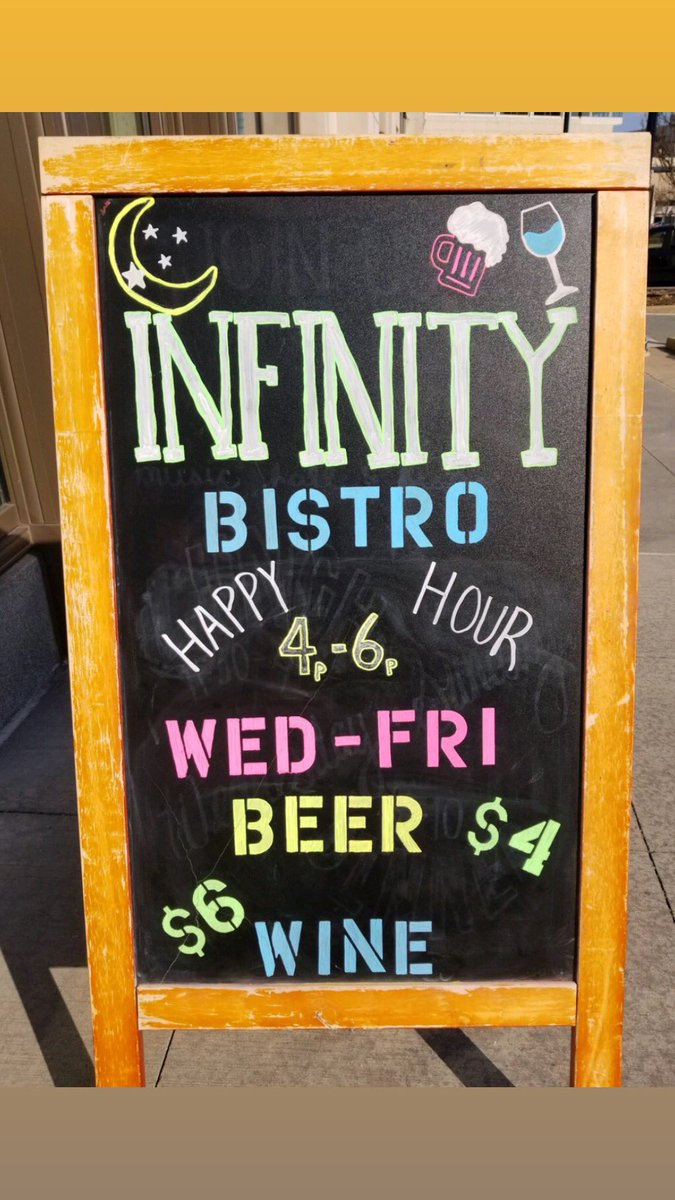 INFINITY
BISTRO
HAPPY HOUR
4p-6p
WED-FRI
BEER $4
$6 WINE